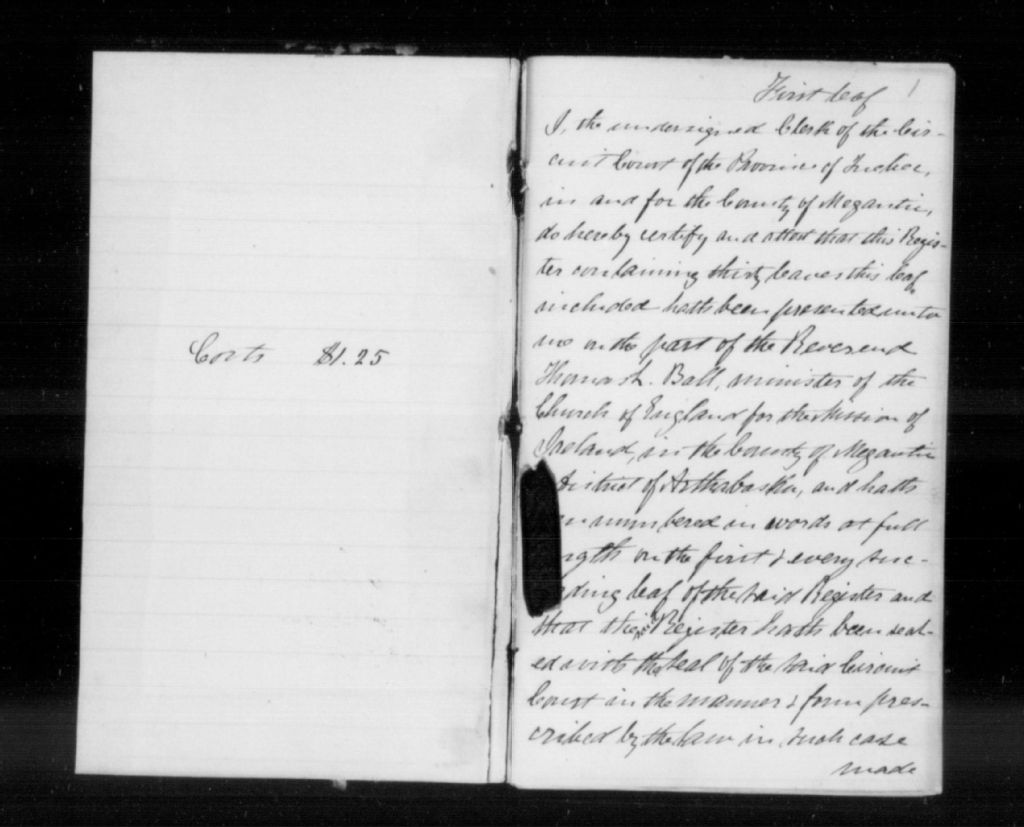 Costs $1.25
First leaf 1
I, the undersigned Clerk of the Cir-
cuit Court of the Province of Quebec,
in and for the County of Megantic,
do hereby certify and attest that this Regis-
ter containing thirty leaves this leaf
included hath been presented unto
me on the part of the Reverend
Thomas L. Ball, minister of the
Church of England for the Mission of
Ireland, in the County of Megantic
District of Arthabaska, and hath
en numbered in words at full
ngth on the first & every suc-
eding leaf of the said Register and
that the Register hath been seal-
ed with the seal of the said Circuit
Court in the manner & form pres-
cribed by the law in such case
made